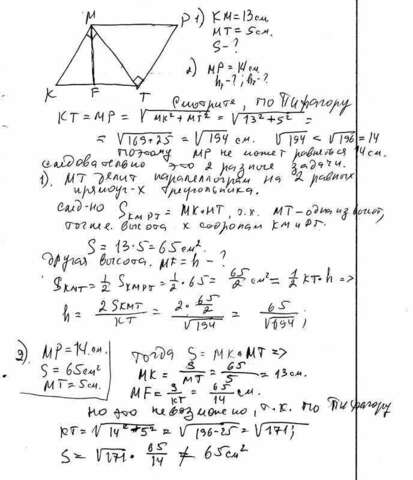 M P
K F T
1) KM = 13 см
MT = 5 см.
S - ?
2) MP = 14 см
h₁ - ?; h₂ - ?
Смотрите, по Пифагору
KT = MP = √MK² + MT² = √13² + 5² =
= √169+25 = √194 см. √194 < √196 = 14
Поэтому MP не может равняться 14 см.
следовательно это 2 разные задачи.
1). MT делит параллелограм на 2 равных
прямоуг-х треугольника.
след-но S KMPT = MK·MT, т.к. MT - одна из высот,
тоже высота к сторонам KM и PT.
S = 13·5 = 65 см².
другая высота. MF = h - ?
S KMT = 1/2 S KMPT = 1/2 · 65 = 65/2 см² = 1/2 KT·h =>
h = 2 S KMT / KT = 2 · 65/2 / √194 = 65 / √194;
2). MP = 14 см.
S = 65 см²
MT = 5 см.
Тогда S = MK·MT =>
MK = S/MT = 65/5 = 13 см.
MF = S/KT = 65/14 см.
Но это невозможно, т.к. по Пифагору
KT = √14² + 5² = √196-25 = √171;
S = √171 · 65/14 ≠ 65 см²